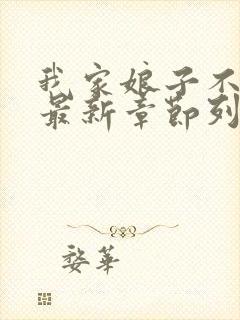 我家娘子不
最新章节列
婺华